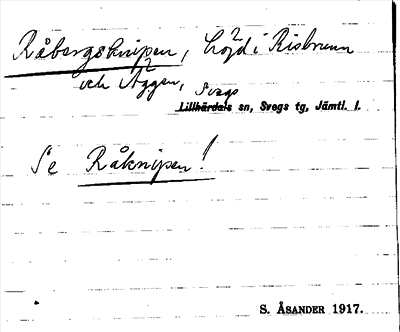 Råbergsknipen, höjd i Risbrunn
och Äggen, Svegs
Lillhärdals sn, Svegs tg, Jämtl. l.
Se Råknipen!
S. ÅSANDER 1917.